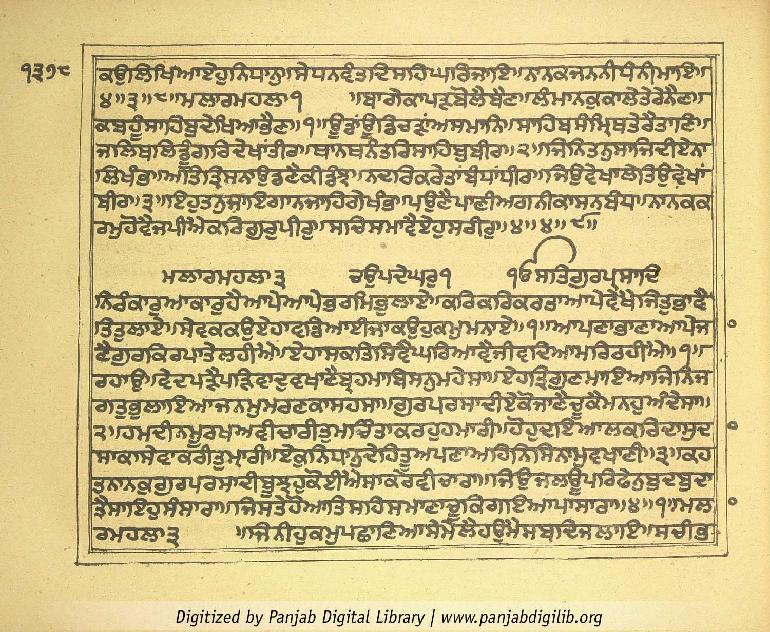 ੧੩੭੮
ਕਉਲਿਖਿਆਏਹੁਨਿਧਾਨੁ॥ਸੇਧਨਵੰਤਦਿਸਹਿਘਰਿਜਾਇ॥ਨਾਨਕਜਨਨੀਧੰਨੀਮਾਇ॥
੪॥੩॥੮॥ਮਲਾਰਮਹਲਾ੧ ॥ਬਾਗੇਕਾਪੜਬੋਲੈਬੈਣ॥ਲੰਮਾਨਕੁਕਾਲੇਤੇਰੇਨੈਣ॥
ਕਬਹੂੰਸਾਹਿਬੁਦੇਖਿਆਭੈਣ॥੧॥ਊਡਾਂਊਡਿਚੜਾਂਅਸਮਾਨਿ॥ਸਾਹਿਬਸੰਮ੍ਰਿਥਤੇਰੈਤਾਣਿ॥
ਜਲਿਥਲਿਡੂੰਗਰਿਦੇਖਾਂਤੀਰ॥ਥਾਨਥਨੰਤਰਿਸਾਹਿਬੁਬੀਰ॥੨॥ਜਿਨਿਤਨੁਸਾਜਿਦੀਏਨਾ
ਲਿਖੰਭ॥ਅਤਿਤ੍ਰਿਸਨਾਉਡਣੈਕੀਡੰਝ॥ਨਦਰਿਕਰੇਤਾਂਬੰਧਾਂਧੀਰ॥ਜਿਉਵੇਖਾਲੇਤਿਉਵੇਖਾਂ
ਬੀਰ॥੩॥ਨਇਹੁਤਨੁਜਾਇਗਾਨਜਾਹਿਗੇਖੰਭ॥ਪਉਣੈਪਾਣੀਅਗਨੀਕਾਸਨਬੰਧ॥ਨਾਨਕਕ
ਰਮੁਹੋਵੈਜਪੀਐਕਰਿਗੁਰੁਪੀਰੁ॥ਸਚਿਸਮਾਵੈਏਹੁਸਰੀਰੁ॥੪॥੪॥੯॥
ਮਲਾਰਮਹਲਾ੩ ਚਉਪਦੇਘਰੁ੧ ੴਸਤਿਗੁਰਪ੍ਰਸਾਦਿ
ਨਿਰੰਕਾਰੁਆਕਾਰੁਹੈਆਪੇਆਪੇਭਰਮਿਭੁਲਾਏ॥ਕਰਿਕਰਿਕਰਤਾਆਪੇਵੇਖੈਜਿਤੁਭਾਵੈ
ਤਿਤੁਲਾਏ॥ਸੇਵਕਕਉਏਹਾਵਡਿਆਈਜਾਕਉਹੁਕਮੁਮਨਾਏ॥੧॥ਆਪਣਾਭਾਣਾਆਪੇਜਾ
ਣੈਗੁਰਕਿਰਪਾਤੇਲਹੀਐ॥ਏਹਾਸਕਤਿਸਿਵੈਘਰਿਆਵੈਜੀਵਦਿਆਮਰਿਰਹੀਐ॥੧॥
ਰਹਾਉ॥ਵੇਦਪੜੈਪੜਿਵਾਦੁਵਖਾਣੈਬ੍ਰਹਮਾਬਿਸਨੁਮਹੇਸਾ॥ਏਹਤ੍ਰਿਗੁਣਮਾਇਆਜਿਨਿਜ
ਗਤੁਭੁਲਾਇਆਜਨਮਮਰਣਕਾਸਹਸਾ॥ਗੁਰਪਰਸਾਦੀਏਕੋਜਾਣੈਚੂਕੈਮਨਹੁਅੰਦੇਸਾ॥
੨॥ਹਮਦੀਨਮੂਰਖਅਵੀਚਾਰੀਤੁਮਚਿੰਤਾਕਰਹੁਹਮਾਰੀ॥ਹੋਹੁਦਇਆਲਕਰਿਦਾਸੁਦ
ਾਸਾਕਾਸੇਵਾਕਰੀਤੁਮਾਰੀ॥ਏਕੁਨਿਧਾਨੁਦੇਹਿਤੂਅਪਣਾਅਹਿਨਿਸਿਨਾਮੁਵਖਾਣੀ॥੩॥ਕਹ
ਤੁਨਾਨਕੁਗੁਰਪਰਸਾਦੀਬੂਝਹੁਕੋਈਐਸਾਕਰੇਵੀਚਾਰਾ॥ਜਿਉਜਲਊਪਰਿਫੇਨੁਬੁਦਬੁਦਾ
ਤੈਸਾਇਹੁਸੰਸਾਰਾ॥ਜਿਸਤੇਹੋਆਤਿਸਹਿਸਮਾਣਾਚੂਕਿਗਇਆਪਾਸਾਰਾ॥੪॥੧॥ਮਲਾ
ਰਮਹਲਾ੩ ॥ਜਿਨੀਹੁਕਮੁਪਛਾਣਿਆਸੇਮੇਲੈਹਉਮੈਸਬਦਿਜਲਾਇ॥ਸਚੀਭ
Digitized by Panjab Digital Library | www.panjabdigilib.org